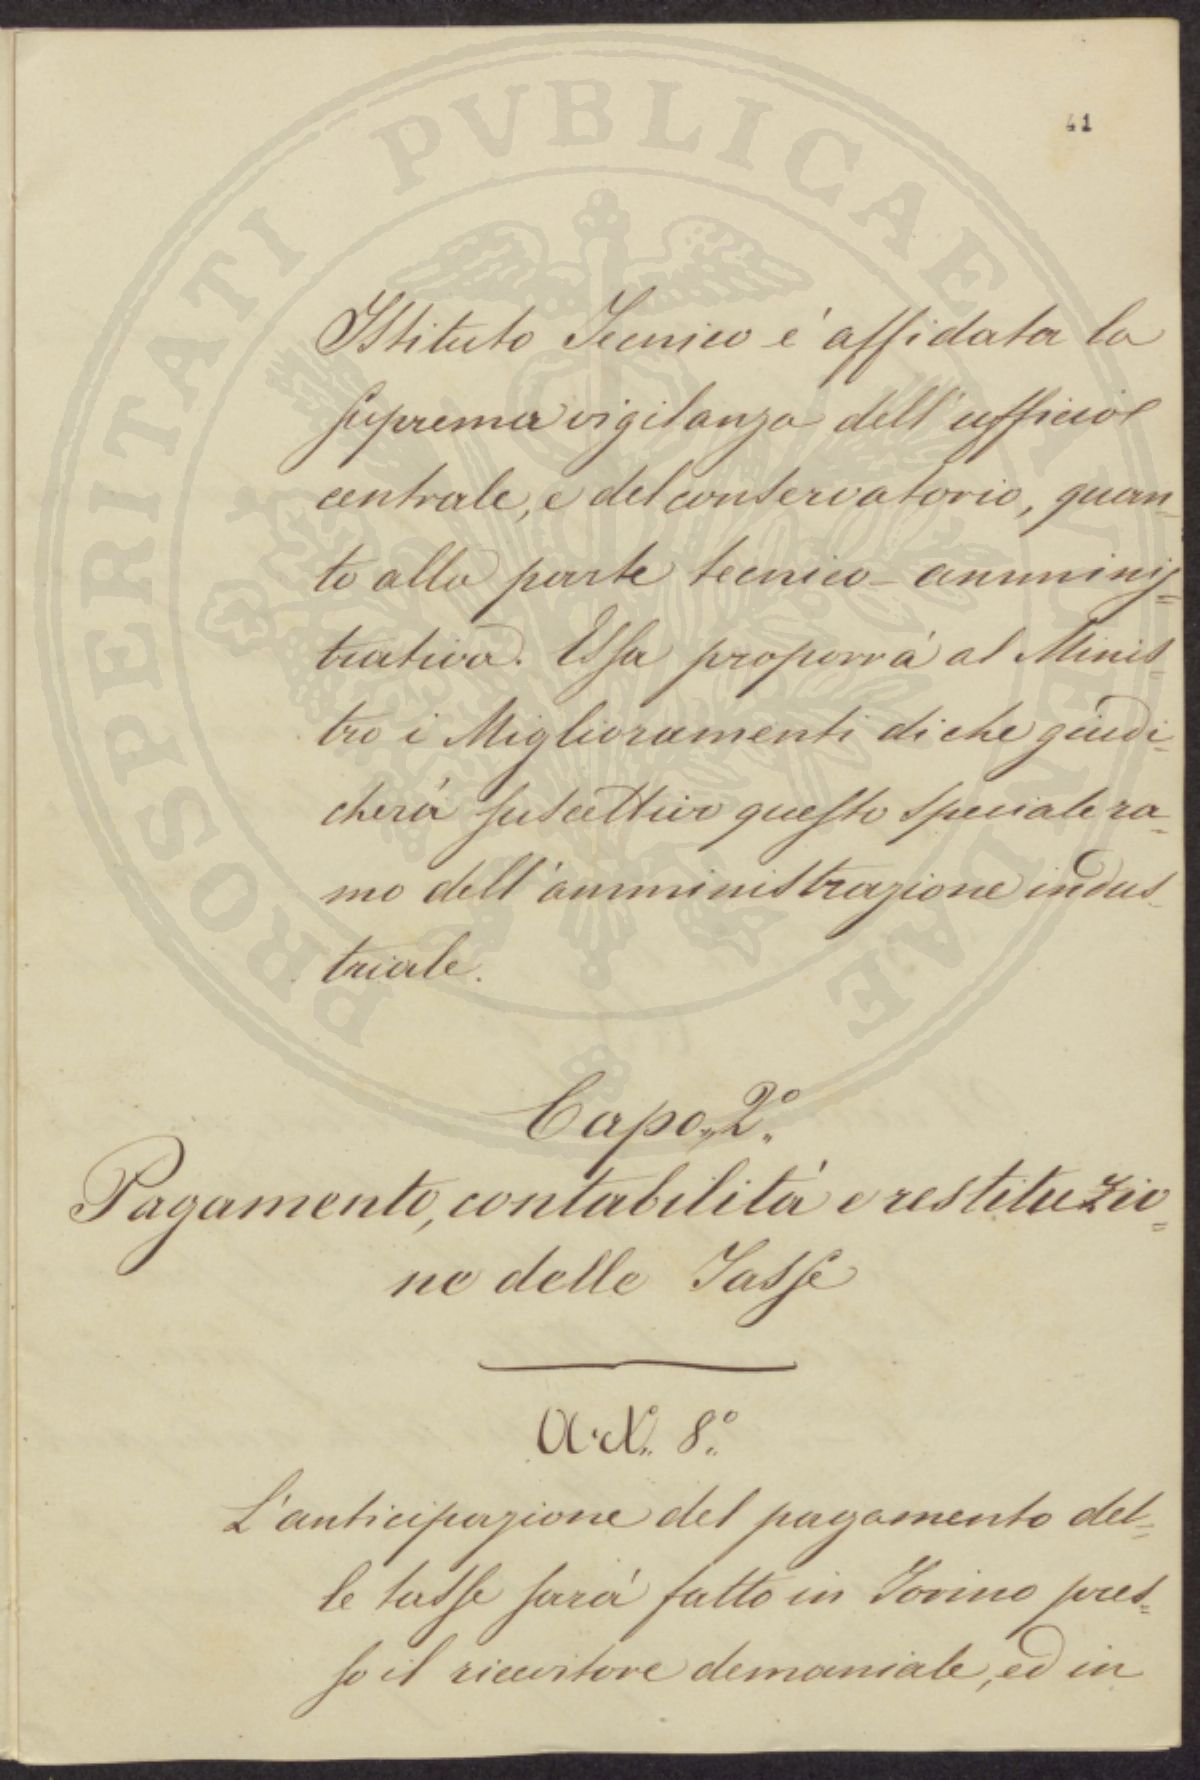 41
PROSPERITATI PVBLICAE AVGENDAE
Istituto Tecnico é affidata la
suprema vigilanza dell'ufficio
centrale, e del conservatorio, quan-
to alla parte tecnico-amminis=
trativa. Essa proporrá al Minis-
tro i Miglioramenti di che giudi-
cherá suscettivo questo speciale ra-
mo dell'amministrazione indus-
triale.
Capo 2º
Pagamento, contabilitá e restituzio=
ne delle Tasse
Art. 8º
L'anticipazione del pagamento del=
le tasse sará fatto in Torino pres=
so il ricevitore demaniale, ed in